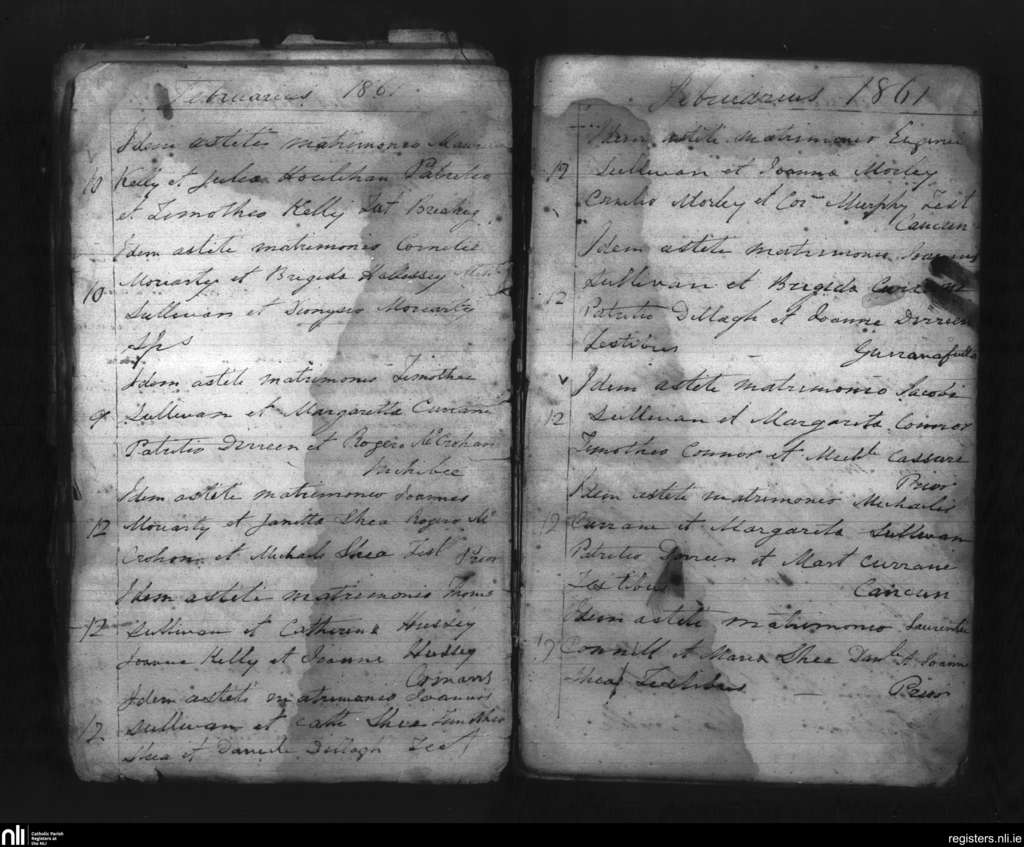 Februarius 1861
Idem astitit matrimonio Maurice
10 Kelly et Julia Houlihan Patritio
et Timotheo Kelly Test
Idem astite matrimonio Cornelie
10 Moriarty et Brigida
Sullivan et Dionysio Moriarty
Sps
Idem astite matrimonio Timothee
9 Sullivan et Margaretta Currane
Patritio Dirreen et Rogero McCrohan
Idem astete matrimonio Joannes
12 Moriarty et Janetta Shea Rogero Mc
Crohon et Michale Shea Test Prior
Idem astete matrimonio Thome
12 Sullivan et Catherine Hussey
Joanne Kelly et Joanne Hussey
Comans
Idem astete matrimonio Joannes
12 Sullivan et Cath Shea Timotheo
Shea et Daniele Dillagh Test
Februarius 1861
Idem astite matrimonio Eugenii
12 Sullivan et Joanna Morley
Cornelio Morley et Cor Murphy Test
Caircun
Idem astete matrimonio Joannes
12 Sullivan et Brigida
Patritio Dillagh et Joanne Dirreen
Testibus
v Idem astete matrimonio Jacobi
12 Sullivan et Margarita Connor
Timotheo Connor et Michl Cassare
Prior
Idem astete matrimonio Michaelis
12 Currane et Margarita Sullivan
Patritio Dirreen et Mart Currane
Testibus Caircun
Idem astete matrimonio Laurentie
12 Connill et Maria Shea Danl et Joanne
Shea Testibus — Prior
nli
Catholic Parish
Registers at
the NLI
registers.nli.ie